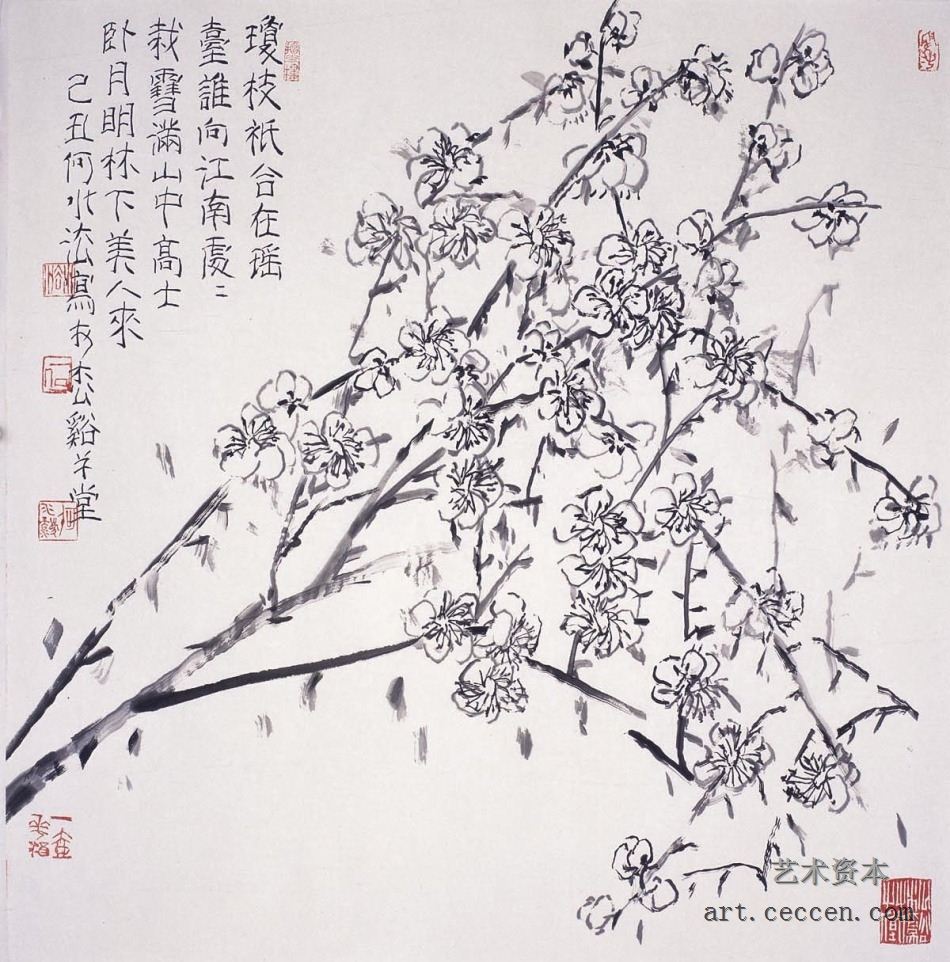 瓊枝祇合在瑶
臺誰向江南處〻
栽雪滿山中髙士
卧月明林下美人來
己丑何水法寫於杭
艺术资本
art.ceccen.com